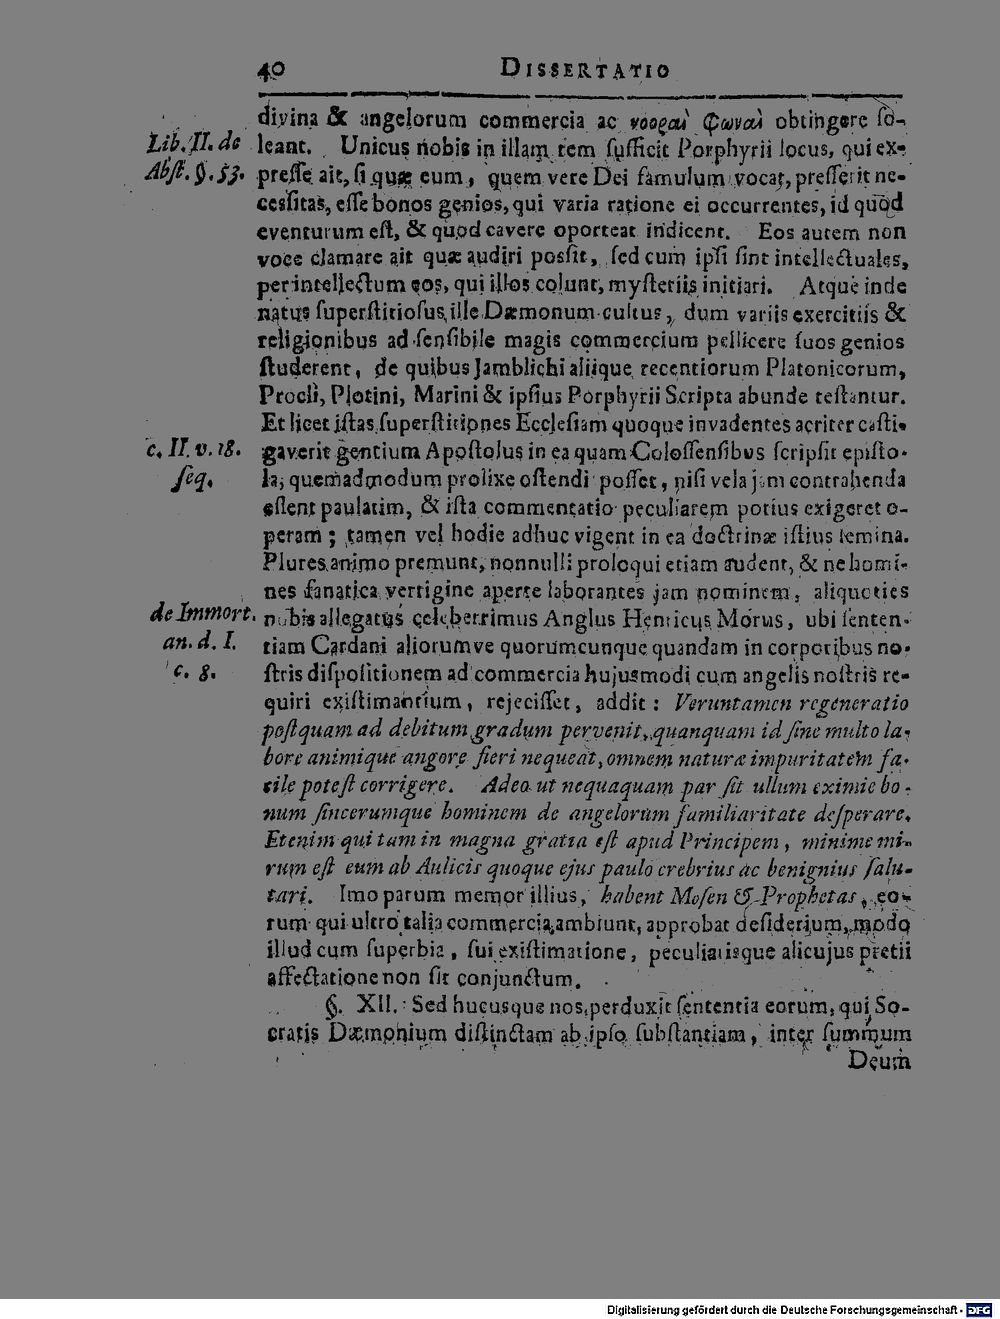 40 DISSERTATIO
divina & angelorum commercia ac νοεραὶ φωναὶ obtingere ſo-
Lib. II. de
Abſt. §. 53.
leant. Unicus nobis in illam rem ſufficit Porphyrii locus, qui ex-
preſſe ait, ſi quæ eum, quem vere Dei famulum vocat, preſſerit ne-
ceſſitas, eſſe bonos genios, qui varia ratione ei occurrentes, id quod
eventurum eſt, & quod cavere oporteat indicent. Eos autem non
voce clamare ait quæ audiri poſſit, ſed cum ipſi ſint intellectuales,
per intellectum eos, qui illos colunt, myſteriis initiari. Atque inde
natus ſuperſtitioſus ille Dæmonum cultus, dum variis exercitiis &
religionibus ad ſenſibile magis commercium pellicere ſuos genios
ſtuderent, de quibus Jamblichi aliique recentiorum Platonicorum,
Procli, Plotini, Marini & ipſius Porphyrii Scripta abunde teſtantur.
Et licet iſtas ſuperſtitiones Eccleſiam quoque invadentes acriter caſti-
c. II. v. 18.
ſeq.
gaverit gentium Apoſtolus in ea quam Coloſſenſibus ſcripſit epiſto-
la, quemadmodum prolixe oſtendi poſſet, niſi vela jam contrahenda
eſſent paulatim, & iſta commentatio peculiarem potius exigeret o-
peram; tamen vel hodie adhuc vigent in ea doctrinæ iſtius ſemina.
Plures animo premunt, nonnulli proloqui etiam audent, & ne homi-
nes fanatica vertigine aperte laborantes jam nominem, aliquoties
de Immort.
an. d. I.
c. 8.
nobis allegatus celeberrimus Anglus Henricus Morus, ubi ſenten-
tiam Cardani aliorumve quorumcunque quandam in corporibus no-
ſtris diſpoſitionem ad commercia hujusmodi cum angelis noſtris re-
quiri exiſtimantium, rejeciſſet, addit: Veruntamen regeneratio
poſtquam ad debitum gradum pervenit, quanquam id ſine multo la-
bore animique angore fieri nequeat, omnem naturæ impuritatem fa-
cile poteſt corrigere. Adeo ut nequaquam par ſit ullum eximie bo-
num ſincerumque hominem de angelorum familiaritate deſperare.
Etenim qui tam in magna gratia eſt apud Principem, minime mi-
rum eſt eum ab Aulicis quoque ejus paulo crebrius ac benignius ſalu-
tari. Imo parum memor illius, habent Moſen & Prophetas, eo-
rum qui ultro talia commercia ambiunt, approbat deſiderium, modo
illud cum ſuperbia, ſui exiſtimatione, peculiarisque alicujus pretii
affectatione non ſit conjunctum.
§. XII. Sed hucusque nos perduxit ſententia eorum, qui So-
cratis Dæmonium diſtinctam ab ipſo ſubſtantiam, inter ſummum
Deum
Digitalisierung gefördert durch die Deutsche Forschungsgemeinschaft - DFG